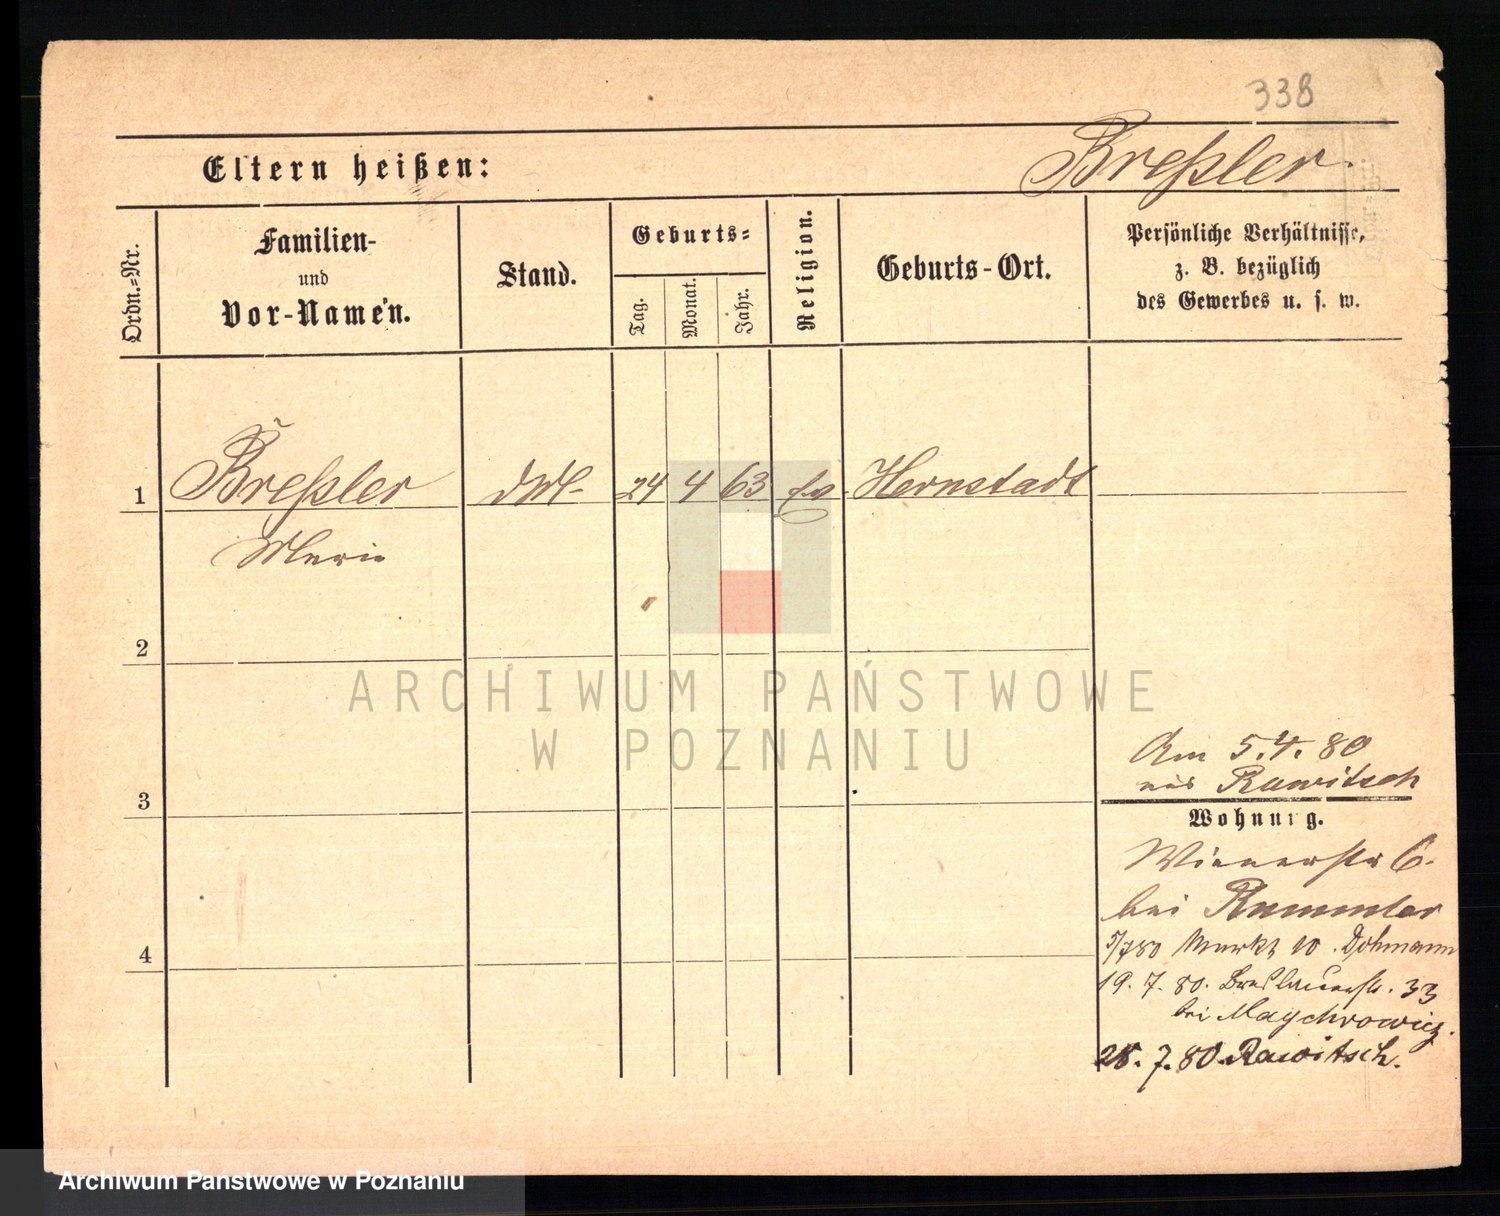 338
Eltern heißen:
Breßler.
Ordn.-Nr.
Familien-
und
Vor-Namen.
Stand.
Geburts-
Tag.
Monat.
Jahr.
Religion.
Geburts-Ort.
Persönliche Verhältnisse,
z. B. bezüglich
des Gewerbes u. s. w.
1
Breßler
24
4
63
Ev
Hernstadt
Marie
2
ARCHIWUM PAŃSTWOWE
W POZNANIU
Am 5.4.80
aus Rawitsch
3
Wohnung.
Wienerstr 6.
bei Rummler
5/780 Markt 10. Dohmann
4
19. 7. 80. Breslauerstr. 33
bei Maychrowicz.
28. 7. 80. Rawitsch.
Archiwum Państwowe w Poznaniu